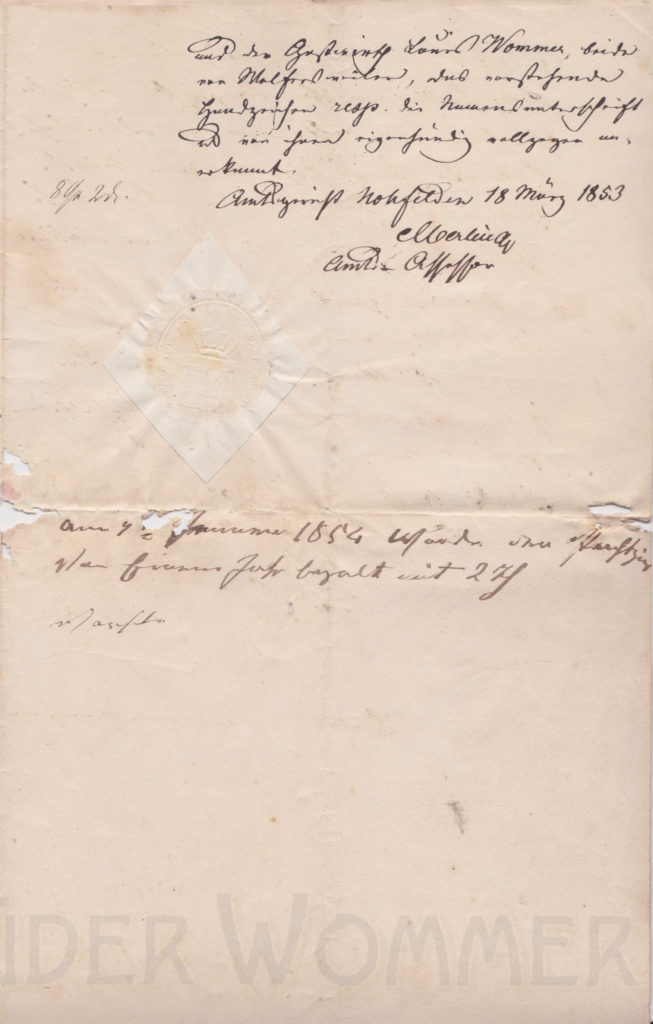 und der Gastwirth Louis Wommer, beide
von Wolfersweiler, das vorstehende
Handzeichen resp. die Namensunterschrift
als von ihnen eigenhändig vollzogen an-
erkannt.
Amtsgericht Nohfelden 18 März 1853
Amts Assessor
am 1854 wurde der
von Einem Jahr bezalt mit 2
NDER WOMMER